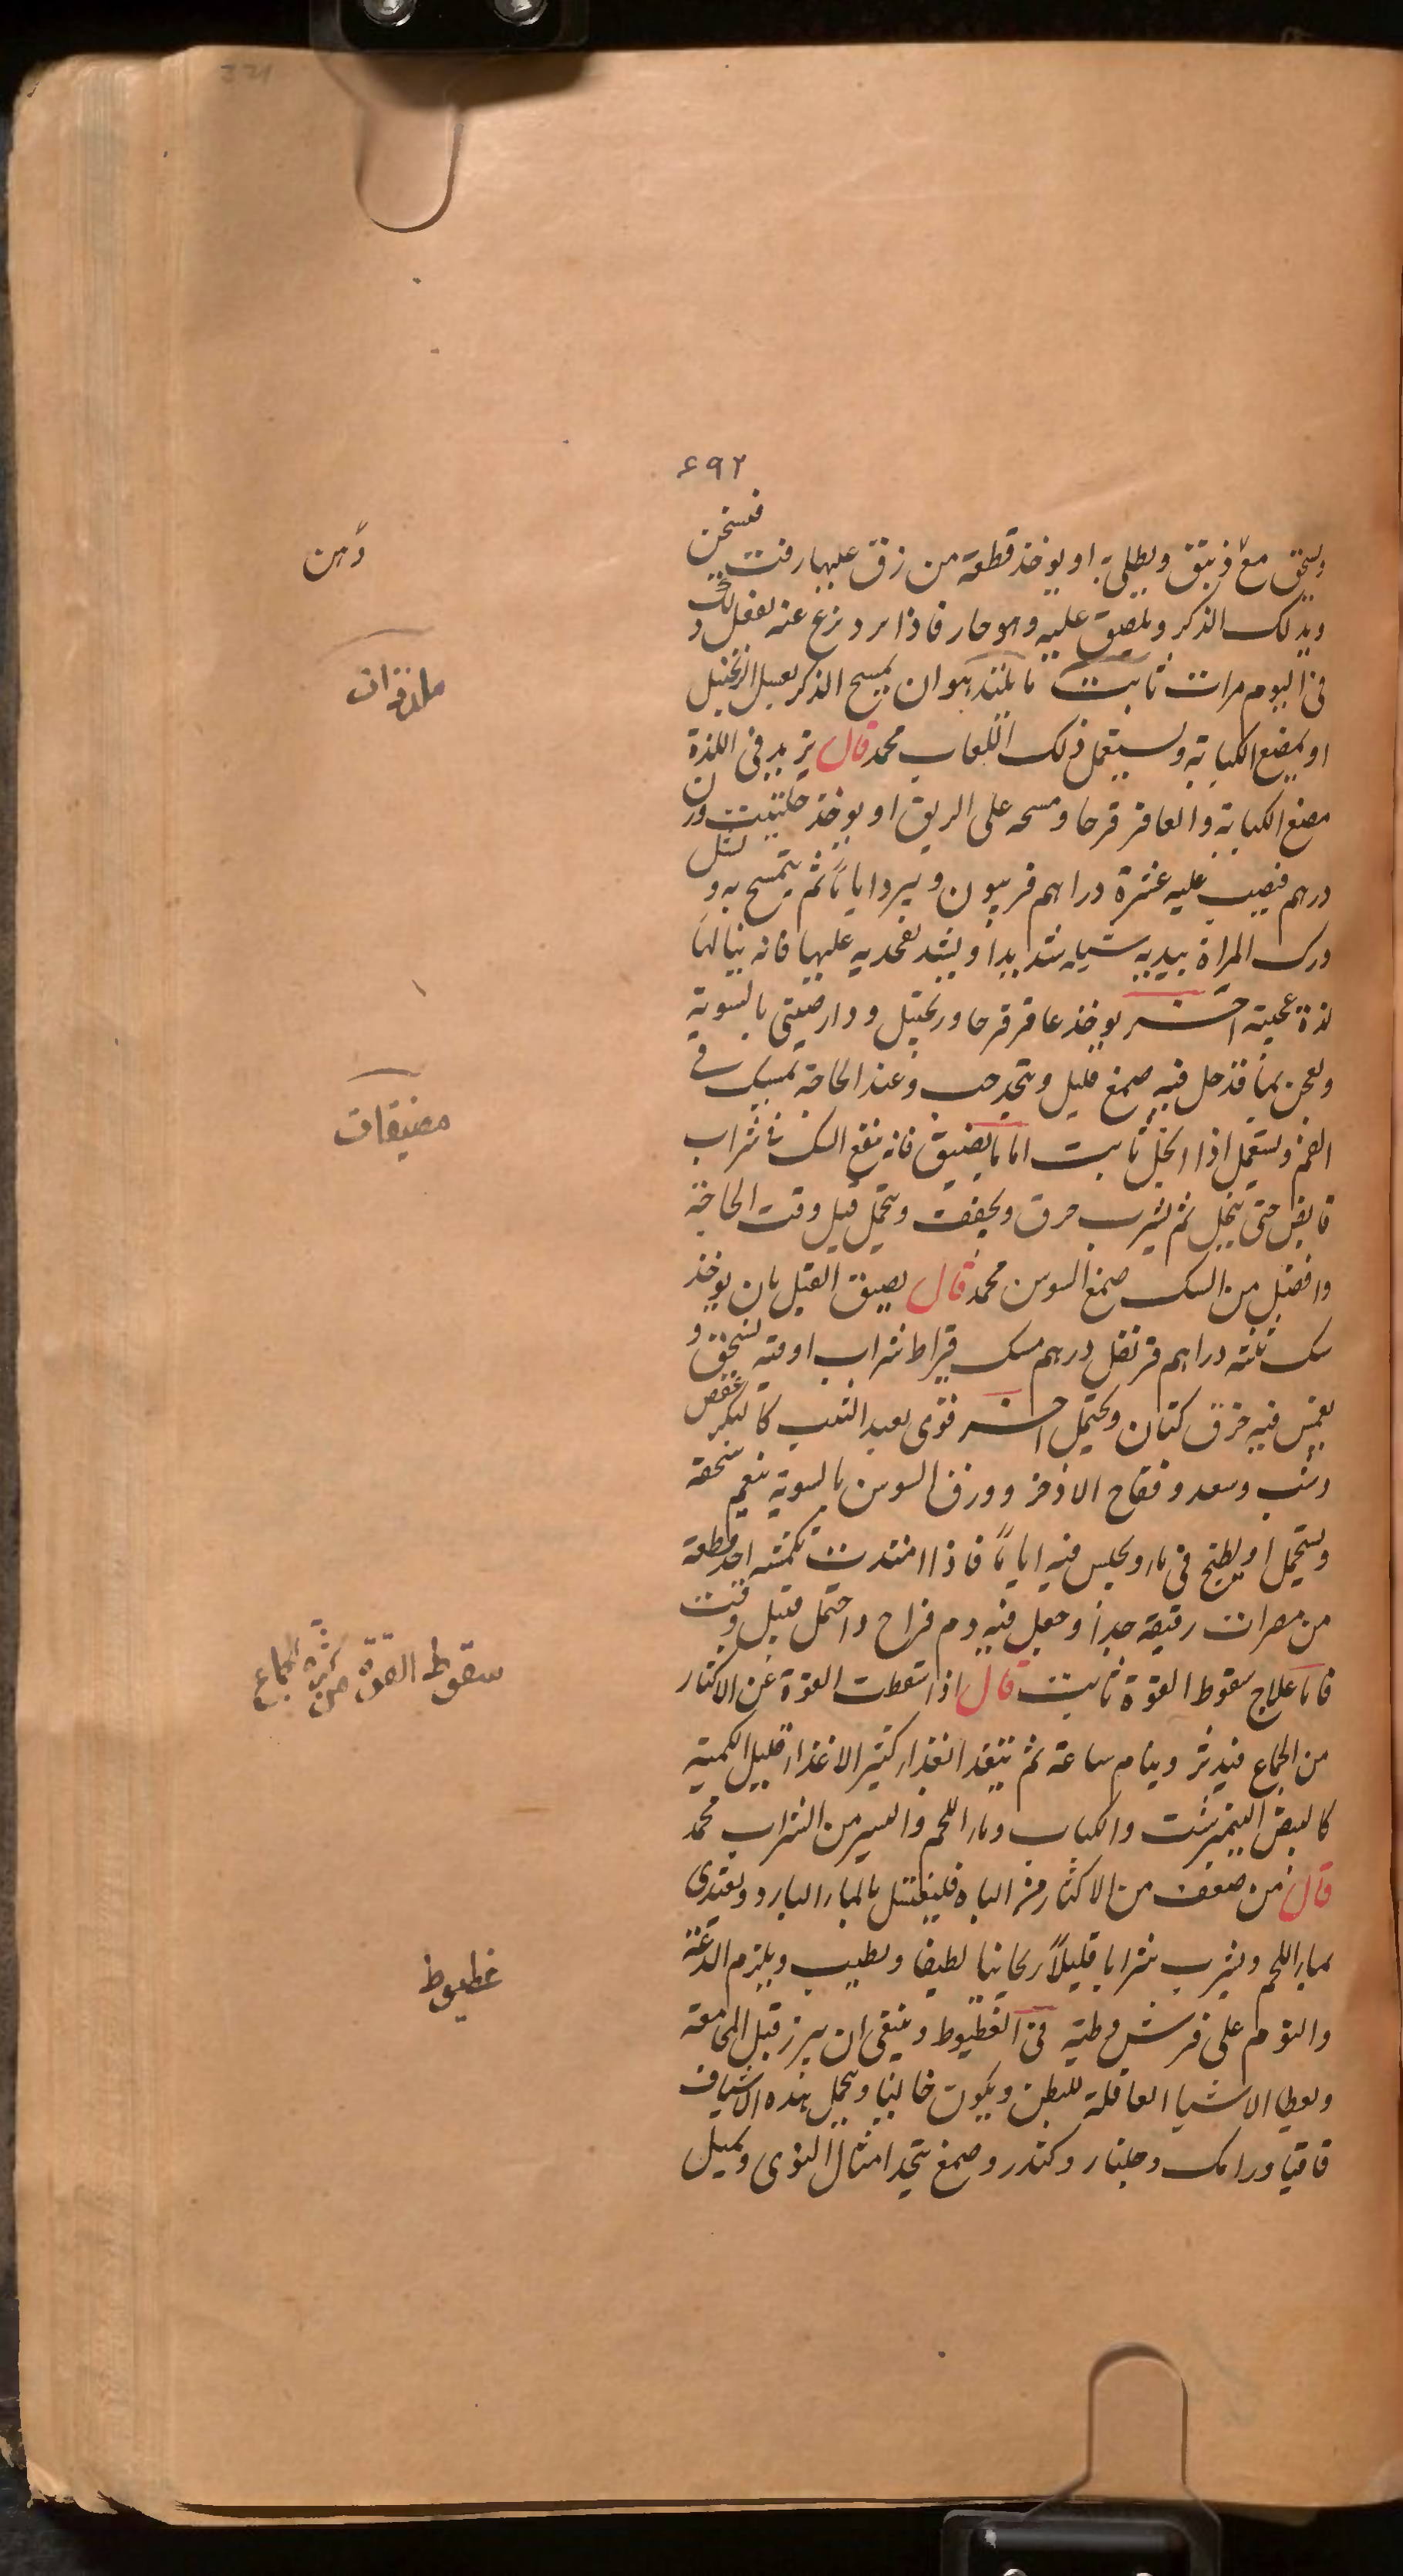 ۶۹۲
ويسحق مع زيبق ويطلى به او يوخذ قطعة من زق عليها زفت فيسخن
ويدلك الذكر ويلصق عليه وهو حار فاذا برد نزع عنه يفعل ذلك
في اليوم مرات ثابت ما يلتذ به هو ان يمسح الذكر بعسل الزنجبيل
او يمضغ الكبابة ويستعمل ذلك اللعاب محمد قال يزيد في اللذة
مضغ الكبابة والعاقر قرحا ومسحه على الريق او يوخذ حلتيت وزن
درهم فيصب عليه عشرة دراهم فربيون ويبرد اياما ثم يتمسح به و
ورك المراة بيديه شيله شديدا ويشد بفخذيه عليها فانه ينالها
لذة عجيبة اخر يوخذ عاقر قرحا وزنجبيل ودارصيني بالسوية
ويعجن بماء قد حل فيه صمغ قليل ويتخذ حب وعند الحاجة يمسك في
الفم ويستعمل اذا انحل ثابت اما ما يضيق فانه ينقع السك في شراب
قابض حتى ينحل ثم يشرب خرق ويجفف ويتحمل قبل وقت الحاجة
وافضل من السك صمغ السوس محمد قال يضيق القبل بان يوخذ
سك ثلثة دراهم قرنفل درهم مسك قيراط شراب اوقية يسحق و
يغمس فيه خرق كتان ويحتمل اخر قوى يعيد الثيب كالبكر عفص
وشب وسعد وفقاح الاذخر وورق السوسن بالسوية ينعم سحقه
ويتحمل او يطبخ في ماء ويجلس فيه اياما فاذا اشتدت اخذ قطعة
من مصران رقيقة جدا وجعل فيه دم فراخ واحتمل قبل وقت
فاما علاج سقوط القوة ثابت قال اذا سقطت القوة عن الاكثار
من الجماع فيدثر وينام ساعة ثم يتغذا بغذاء كثير الاغذاء قليل الكمية
كالبيض النيمبرشت والكباب وماء اللحم واليسير من الشراب محمد
قال من ضعف من الاكثار من الباه فليغتسل بالماء البارد ويغتدى
بماء اللحم ويشرب شرابا قليلا ريحانيا لطيفا وتطيب ويلزم الدعة
والنوم على فرش وطية في الغطيوط وينبغي ان يبرز قبل المجامعة
ويعطي الاشيا العاقلة للبطن ويكون خاليا ويحمل هذه الاشياف
قاقيا ورامك وجلنار وكندر وصمغ يتخذ امثال النوى ويحمل
دهن
ملذذات
مضيقات
سقوط القوة من كثرة الجماع
غطيوط